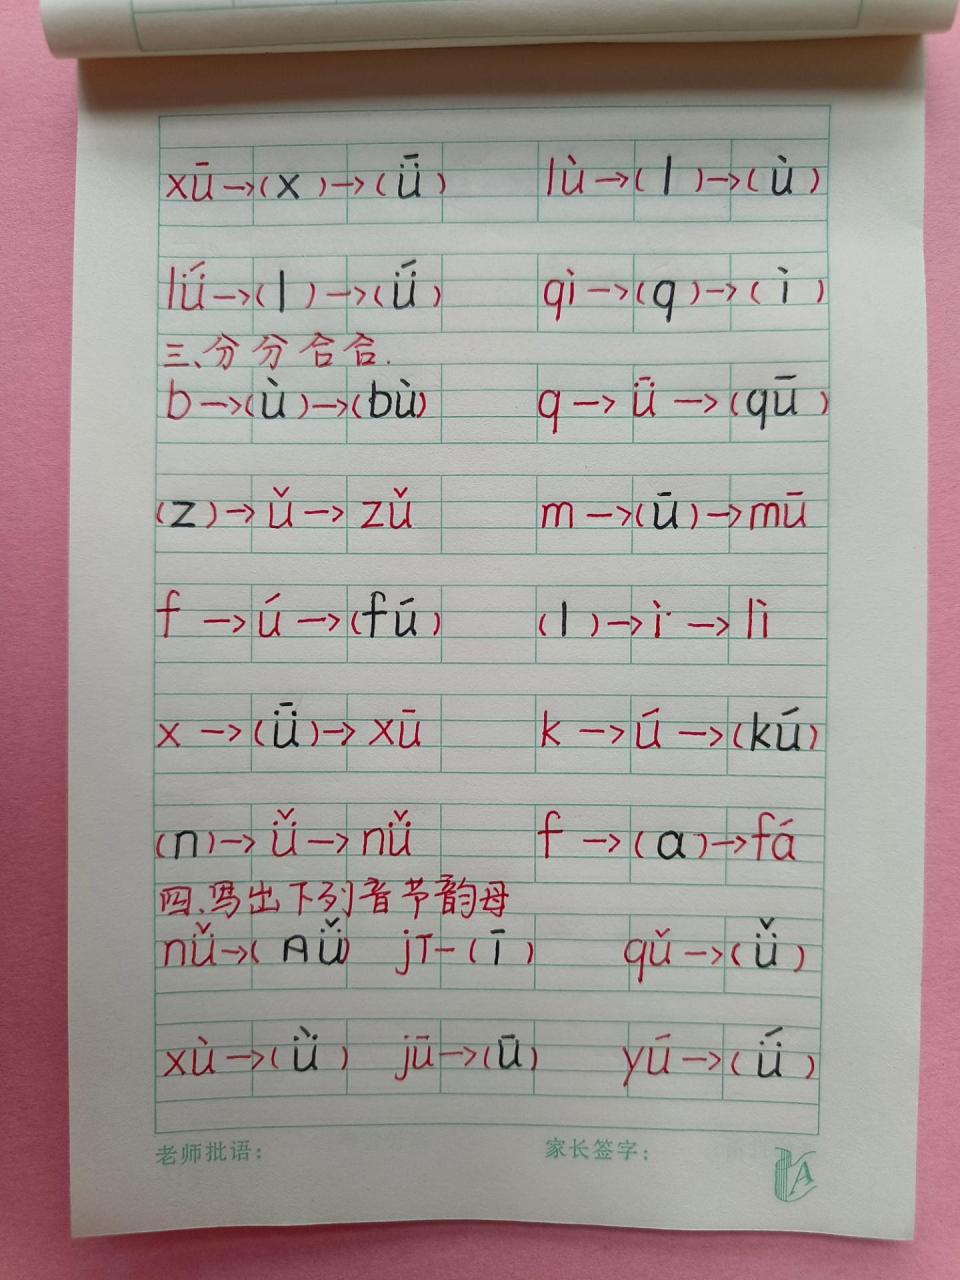 xū→(x)→(ǖ) lù→(l)→(ù)
lǘ→(l)→(ǘ) qì→(q)→(ì)
三、分分合合.
b→(ù)→(bù) q→ǖ→(qū)
(z)→ǔ→zǔ m→(ū)→mū
f→ú→(fú) (l)→ì→lì
x→(ǖ)→xū k→ú→(kú)
(n)→ǚ→nǚ f→(a)→fá
四、写出下列音节韵母
nǚ→(Aǚ) jī-(ī) qǔ→(ǚ)
xù→(ǜ) jū→(ū) yú→(ǘ)
老师批语: 家长签字:
A